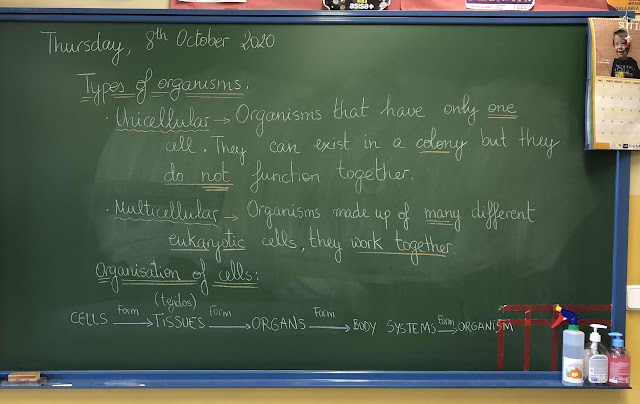 Thursday, 8th October 2020
Types of organisms:
· Unicellular → Organisms that have only one
cell. They can exist in a colony but they
do not function together.
· Multicellular → Organisms made up of many different
eukaryotic cells, they work together.
Organisation of cells:
(tejidos)
CELLS Form → TISSUES Form → ORGANS Form → BODY SYSTEMS Form → ORGANISM